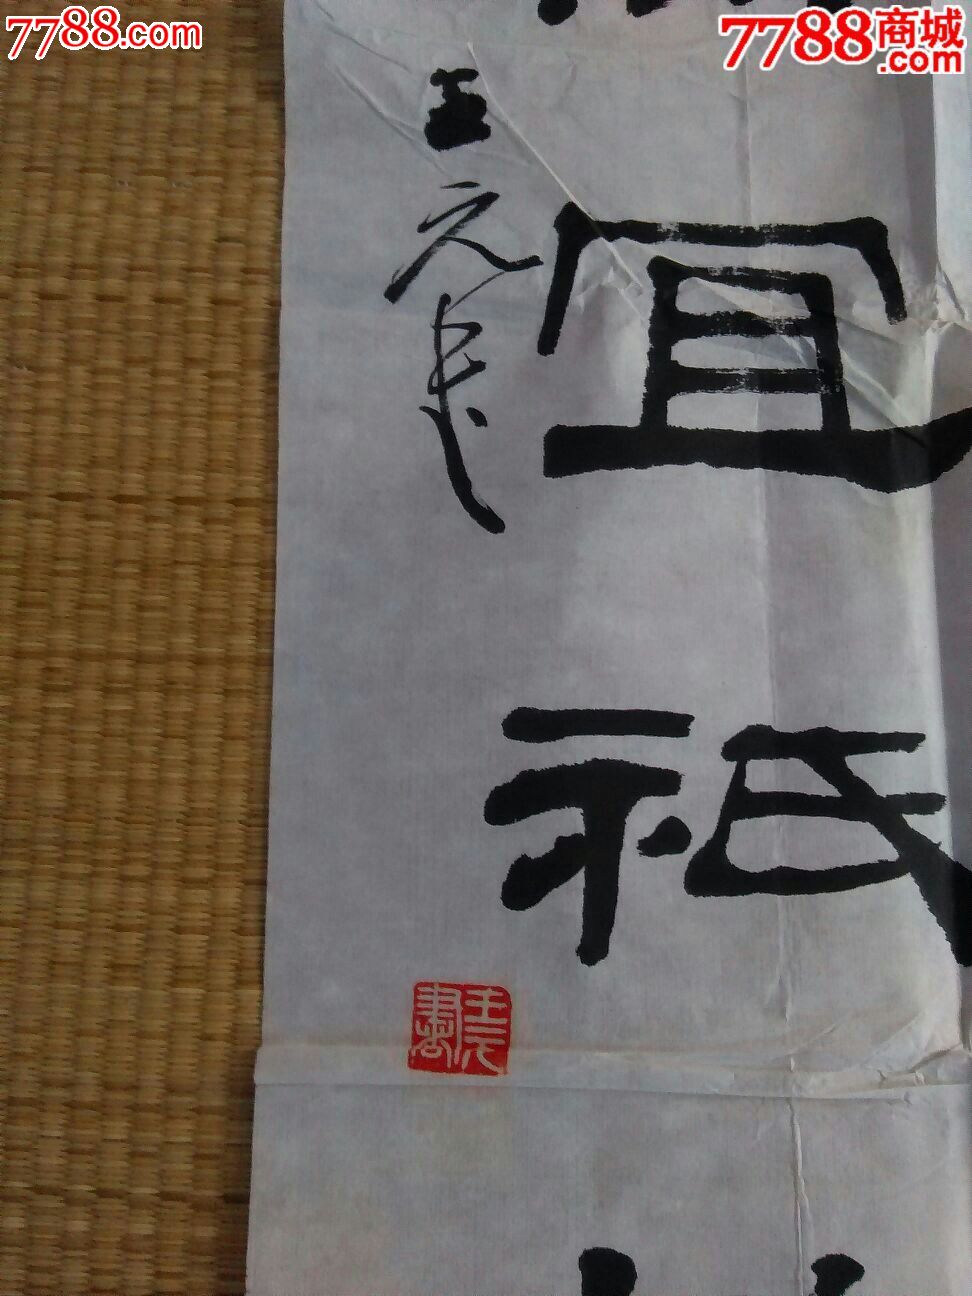 7788.com
7788商城
.com
宜祇
王元
王元書